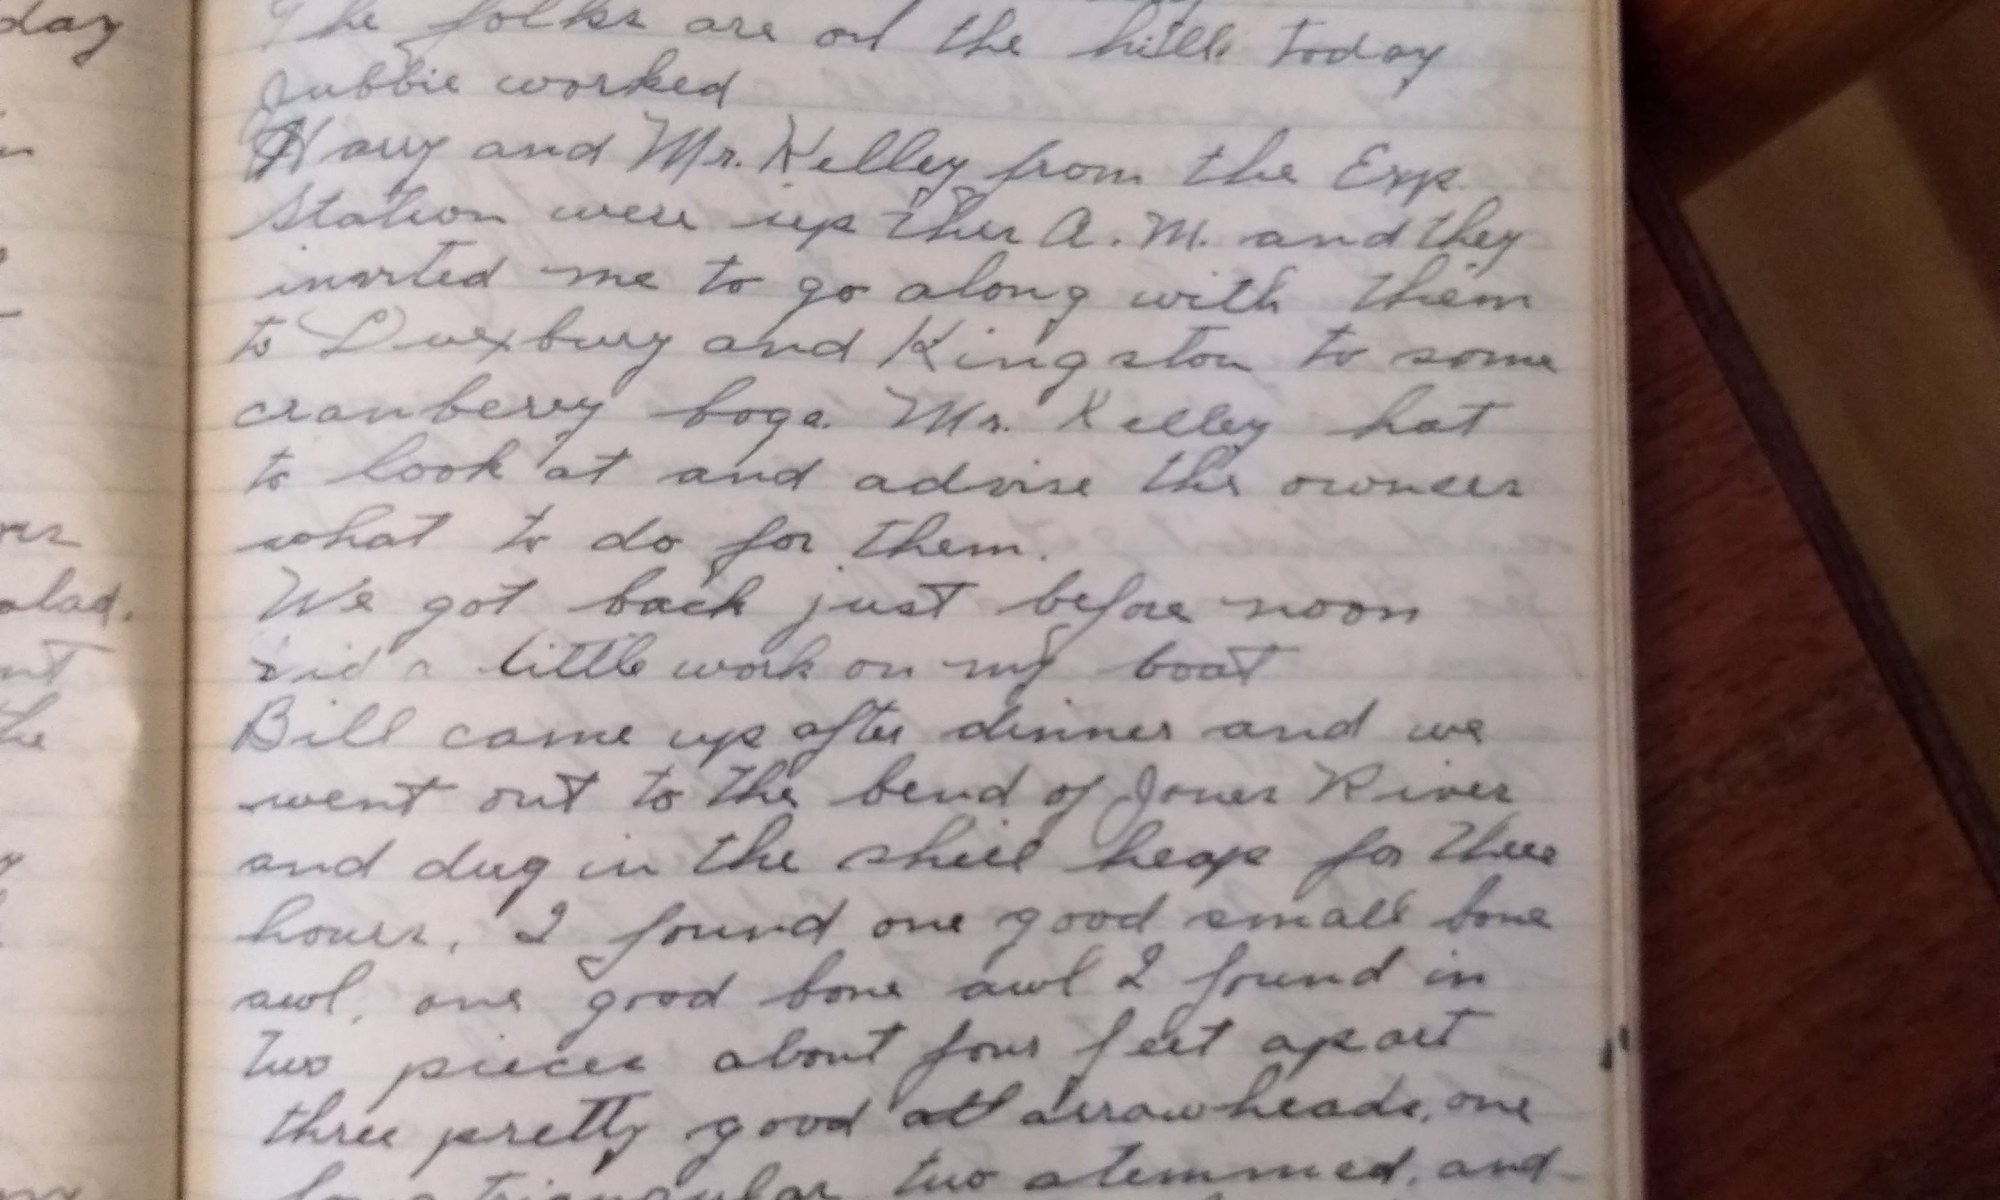 day
The folks are on the hill today
Jubbie worked
Harry and Mr. Kelley from the Exp.
Station were up this A.M. and they
invited me to go along with them
to Duxbury and Kingston to some
cranberry bogs. Mr. Kelley hat
to look at and advise the owners
what to do for them.
We got back just before noon
did a little work on my boat
Bill came up after dinner and we
went out to the bend of Jones River
and dug in the shell heap for three
hours, I found one good small bone
awl, one good bone awl I found in
two pieces about four feet apart
three pretty good arrowheads, one
long triangular two stemmed, and
alad.
the